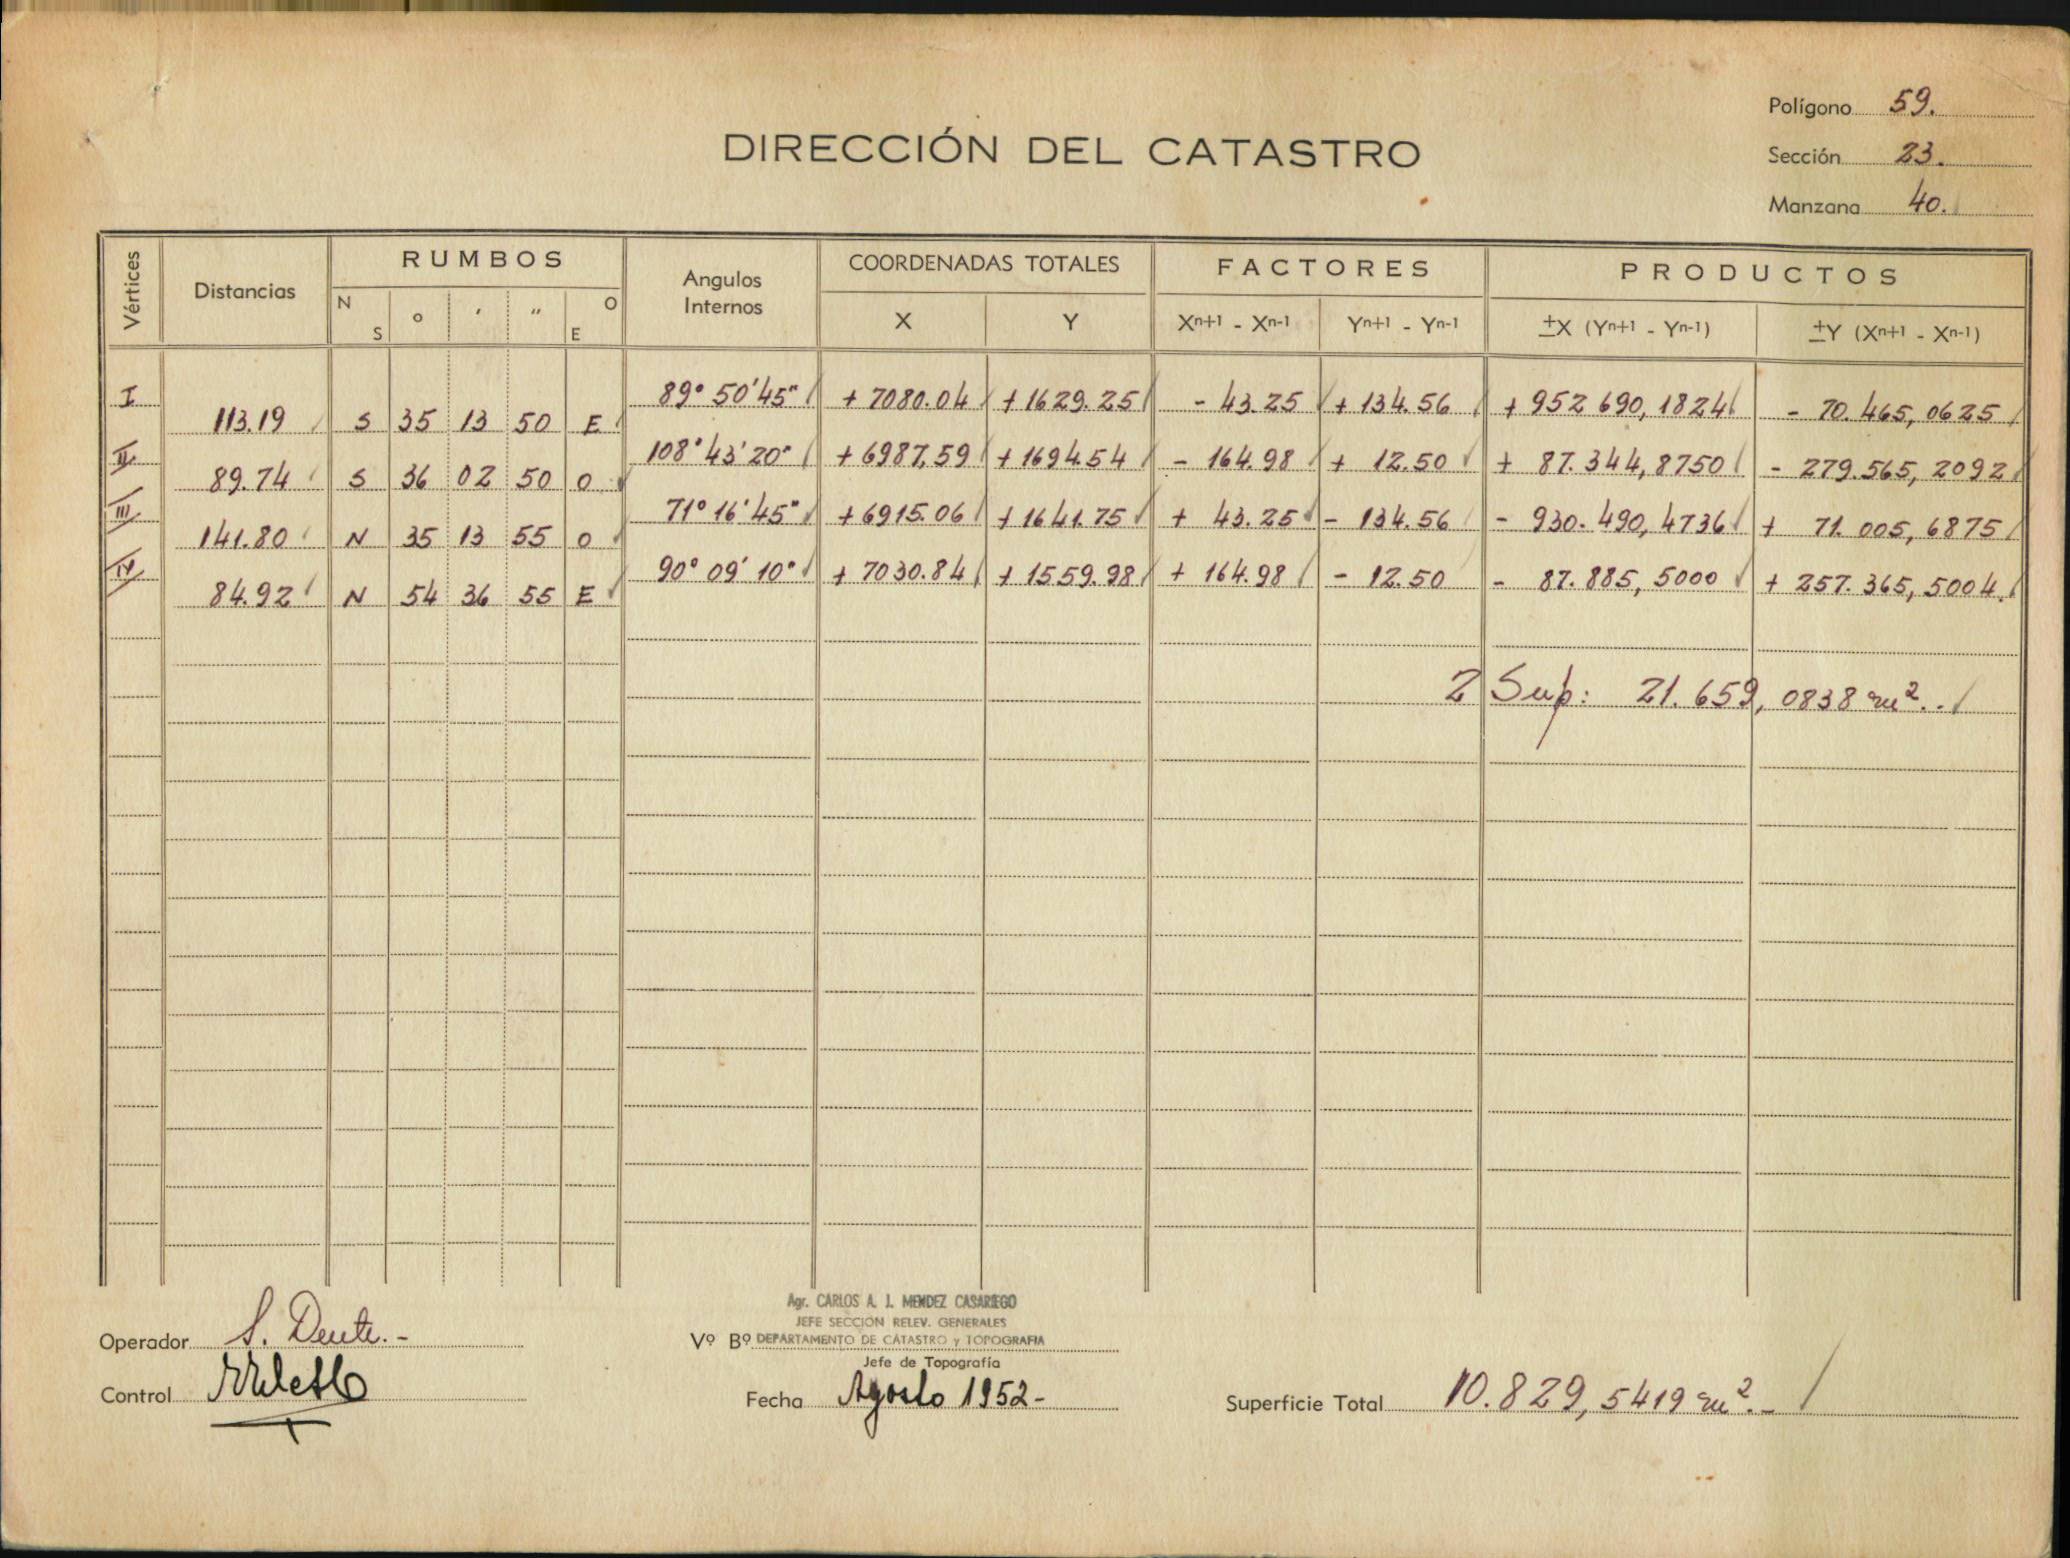 Polígono 59.
DIRECCIÓN DEL CATASTRO
Sección 23.
Manzana 40.
Vértices Distancias RUMBOS Angulos Internos COORDENADAS TOTALES FACTORES PRODUCTOS
N S ° ' " O E X Y Xn+1 - Xn-1 Yn+1 - Yn-1 ±X (Yn+1 - Yn-1) ±Y (Xn+1 - Xn-1)
I 89° 50' 45" + 7080.04 + 1629.25 - 43.25 + 134.56 + 952 690,1824 - 70.465,0625
113.19 S 35 13 50 E
II 108° 43' 20" + 6987,59 + 1694.54 - 164.98 + 12.50 + 87.344,8750 - 279.565,2092
89.74 S 36 02 50 O
III 71° 16' 45" + 6915.06 + 1641.75 + 43.25 - 134.56 - 930.490,4736 + 71.005,6875
141.80 N 35 13 55 O
IV 90° 09' 10" + 7030.84 + 1559.98 + 164.98 - 12.50 - 87.885,5000 + 257.365,5004.
84.92 N 54 36 55 E
2 Sup: 21.659,0838 m².
Agr. CARLOS A. J. MENDEZ CASARIEGO
JEFE SECCIÓN RELEV. GENERALES
Operador S. Dente.-
Vº Bº DEPARTAMENTO DE CATASTRO y TOPOGRAFIA
Jefe de Topografía
Control
Fecha Agosto 1952-
Superficie Total 10.829,5419 m².-